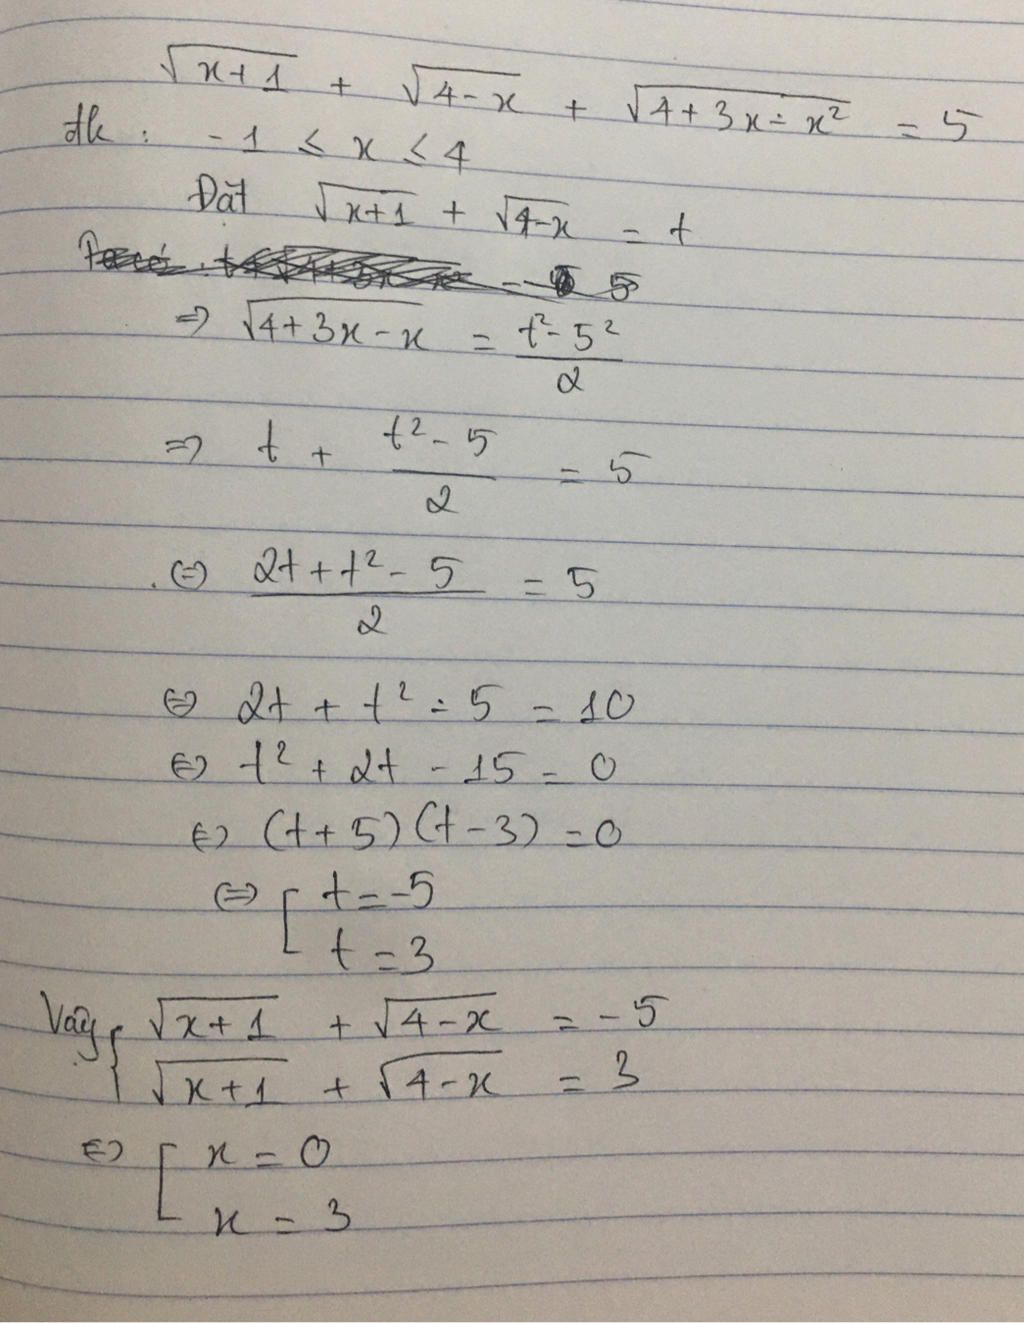 √(x+1) + √(4-x) + √(4+3x-x²) = 5
đk : -1 ≤ x ≤ 4
Đặt √(x+1) + √(4-x) = t
⇒ √(4+3x-x) = (t²-5²)/2
⇒ t + (t²-5)/2 = 5
⇔ (2t+t²-5)/2 = 5
⇔ 2t + t² - 5 = 10
⇔ t² + 2t - 15 = 0
⇔ (t+5)(t-3) = 0
⇔ [ t = -5
t = 3
Vậy { √(x+1) + √(4-x) = -5
√(x+1) + √(4-x) = 3
⇔ [ x = 0
x = 3